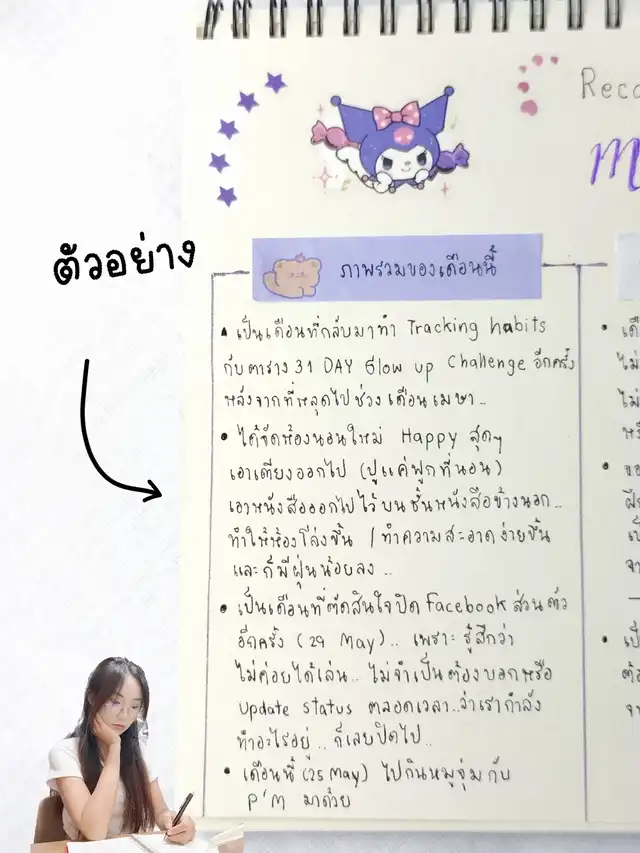 Reco
m
ตัวอย่าง
ภาพรวมของเดือนนี้
• เป็นเดือนที่กลับมาทำ Tracking habits
กับตาราง 31 DAY Glow up Challenge อีกครั้ง
หลังจากที่หลุดไปช่วงเดือนเมษา..
• ได้จัดห้องนอนใหม่ Happy สุดๆ
เอาเตียงออกไป (ปูแค่ฟูกที่นอน)
เอาหนังสือออกไปไว้บนชั้นหนังสือข้างนอก..
ทำให้ห้องโล่งขึ้น / ทำความสะอาดง่ายขึ้น
และก็มีฝุ่นน้อยลง..
• เป็นเดือนที่ตัดสินใจปิด Facebook ส่วนตัว
อีกครั้ง (29 May).. เพราะรู้สึกว่า
ไม่ค่อยได้เล่น.. ไม่จำเป็นต้องบอกหรือ
update status ตลอดเวลา..ว่าเรากำลัง
ทำอะไรอยู่.. ก็เลยปิดไป..
• เดือนนี้ (25 May) ไปกินหมูจุ่มกับ
P'M มาด้วย
• เดื
ไม่
ไม่
หรื
• ขอ
ฝึ
เป็
จา
• เป็
ต้อ
จา